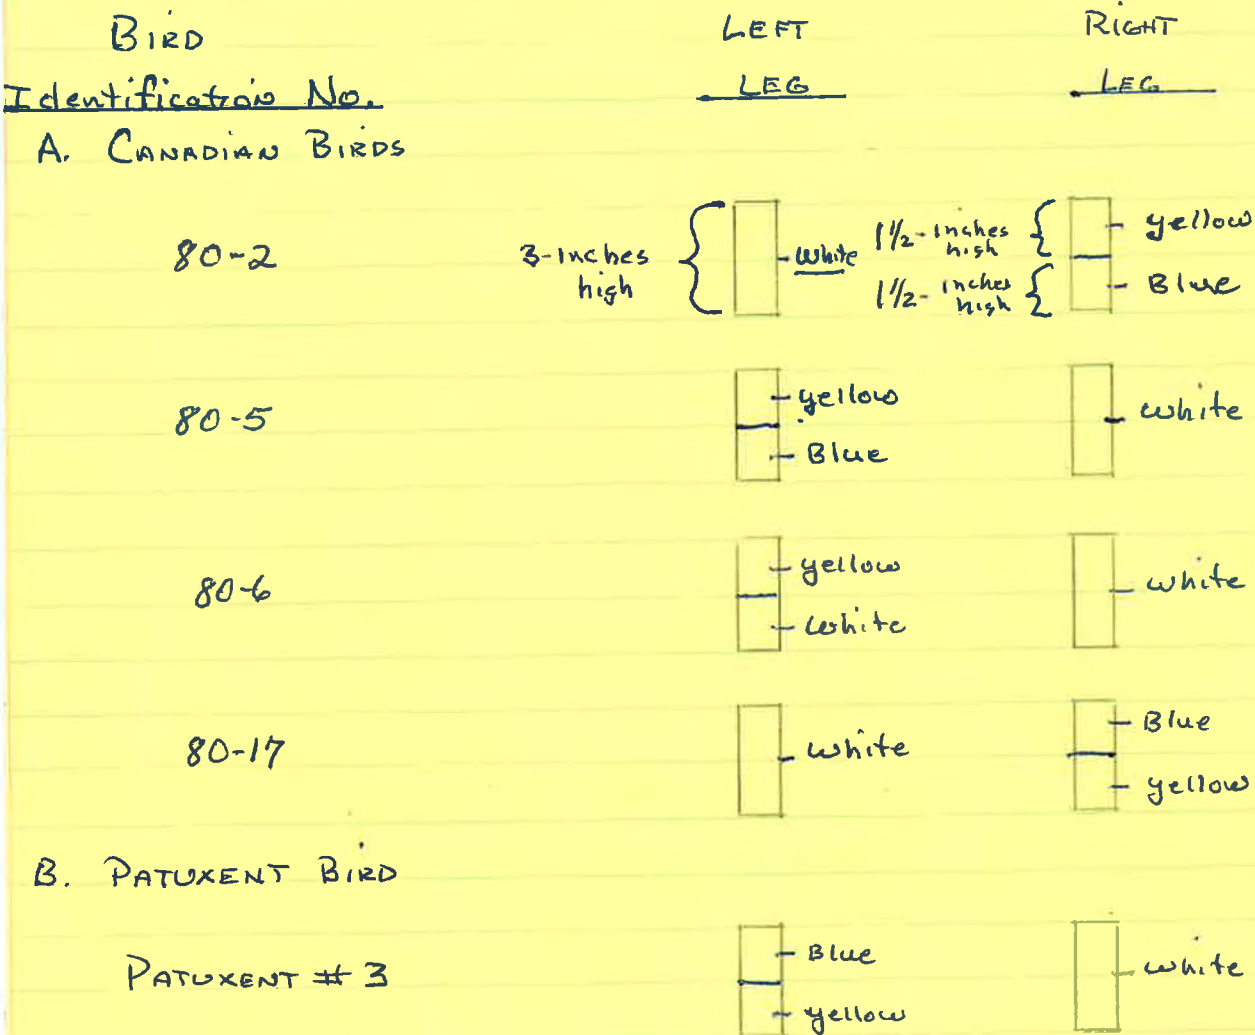 BIRD LEFT RIGHT
Identification No. LEG LEG
A. CANADIAN BIRDS
80-2 3-inches high white 1 1/2-inches high yellow
1 1/2-inches high Blue
80-5 yellow white
Blue
80-6 yellow white
white
80-17 white Blue
yellow
B. PATUXENT BIRD
PATUXENT # 3 Blue white
yellow